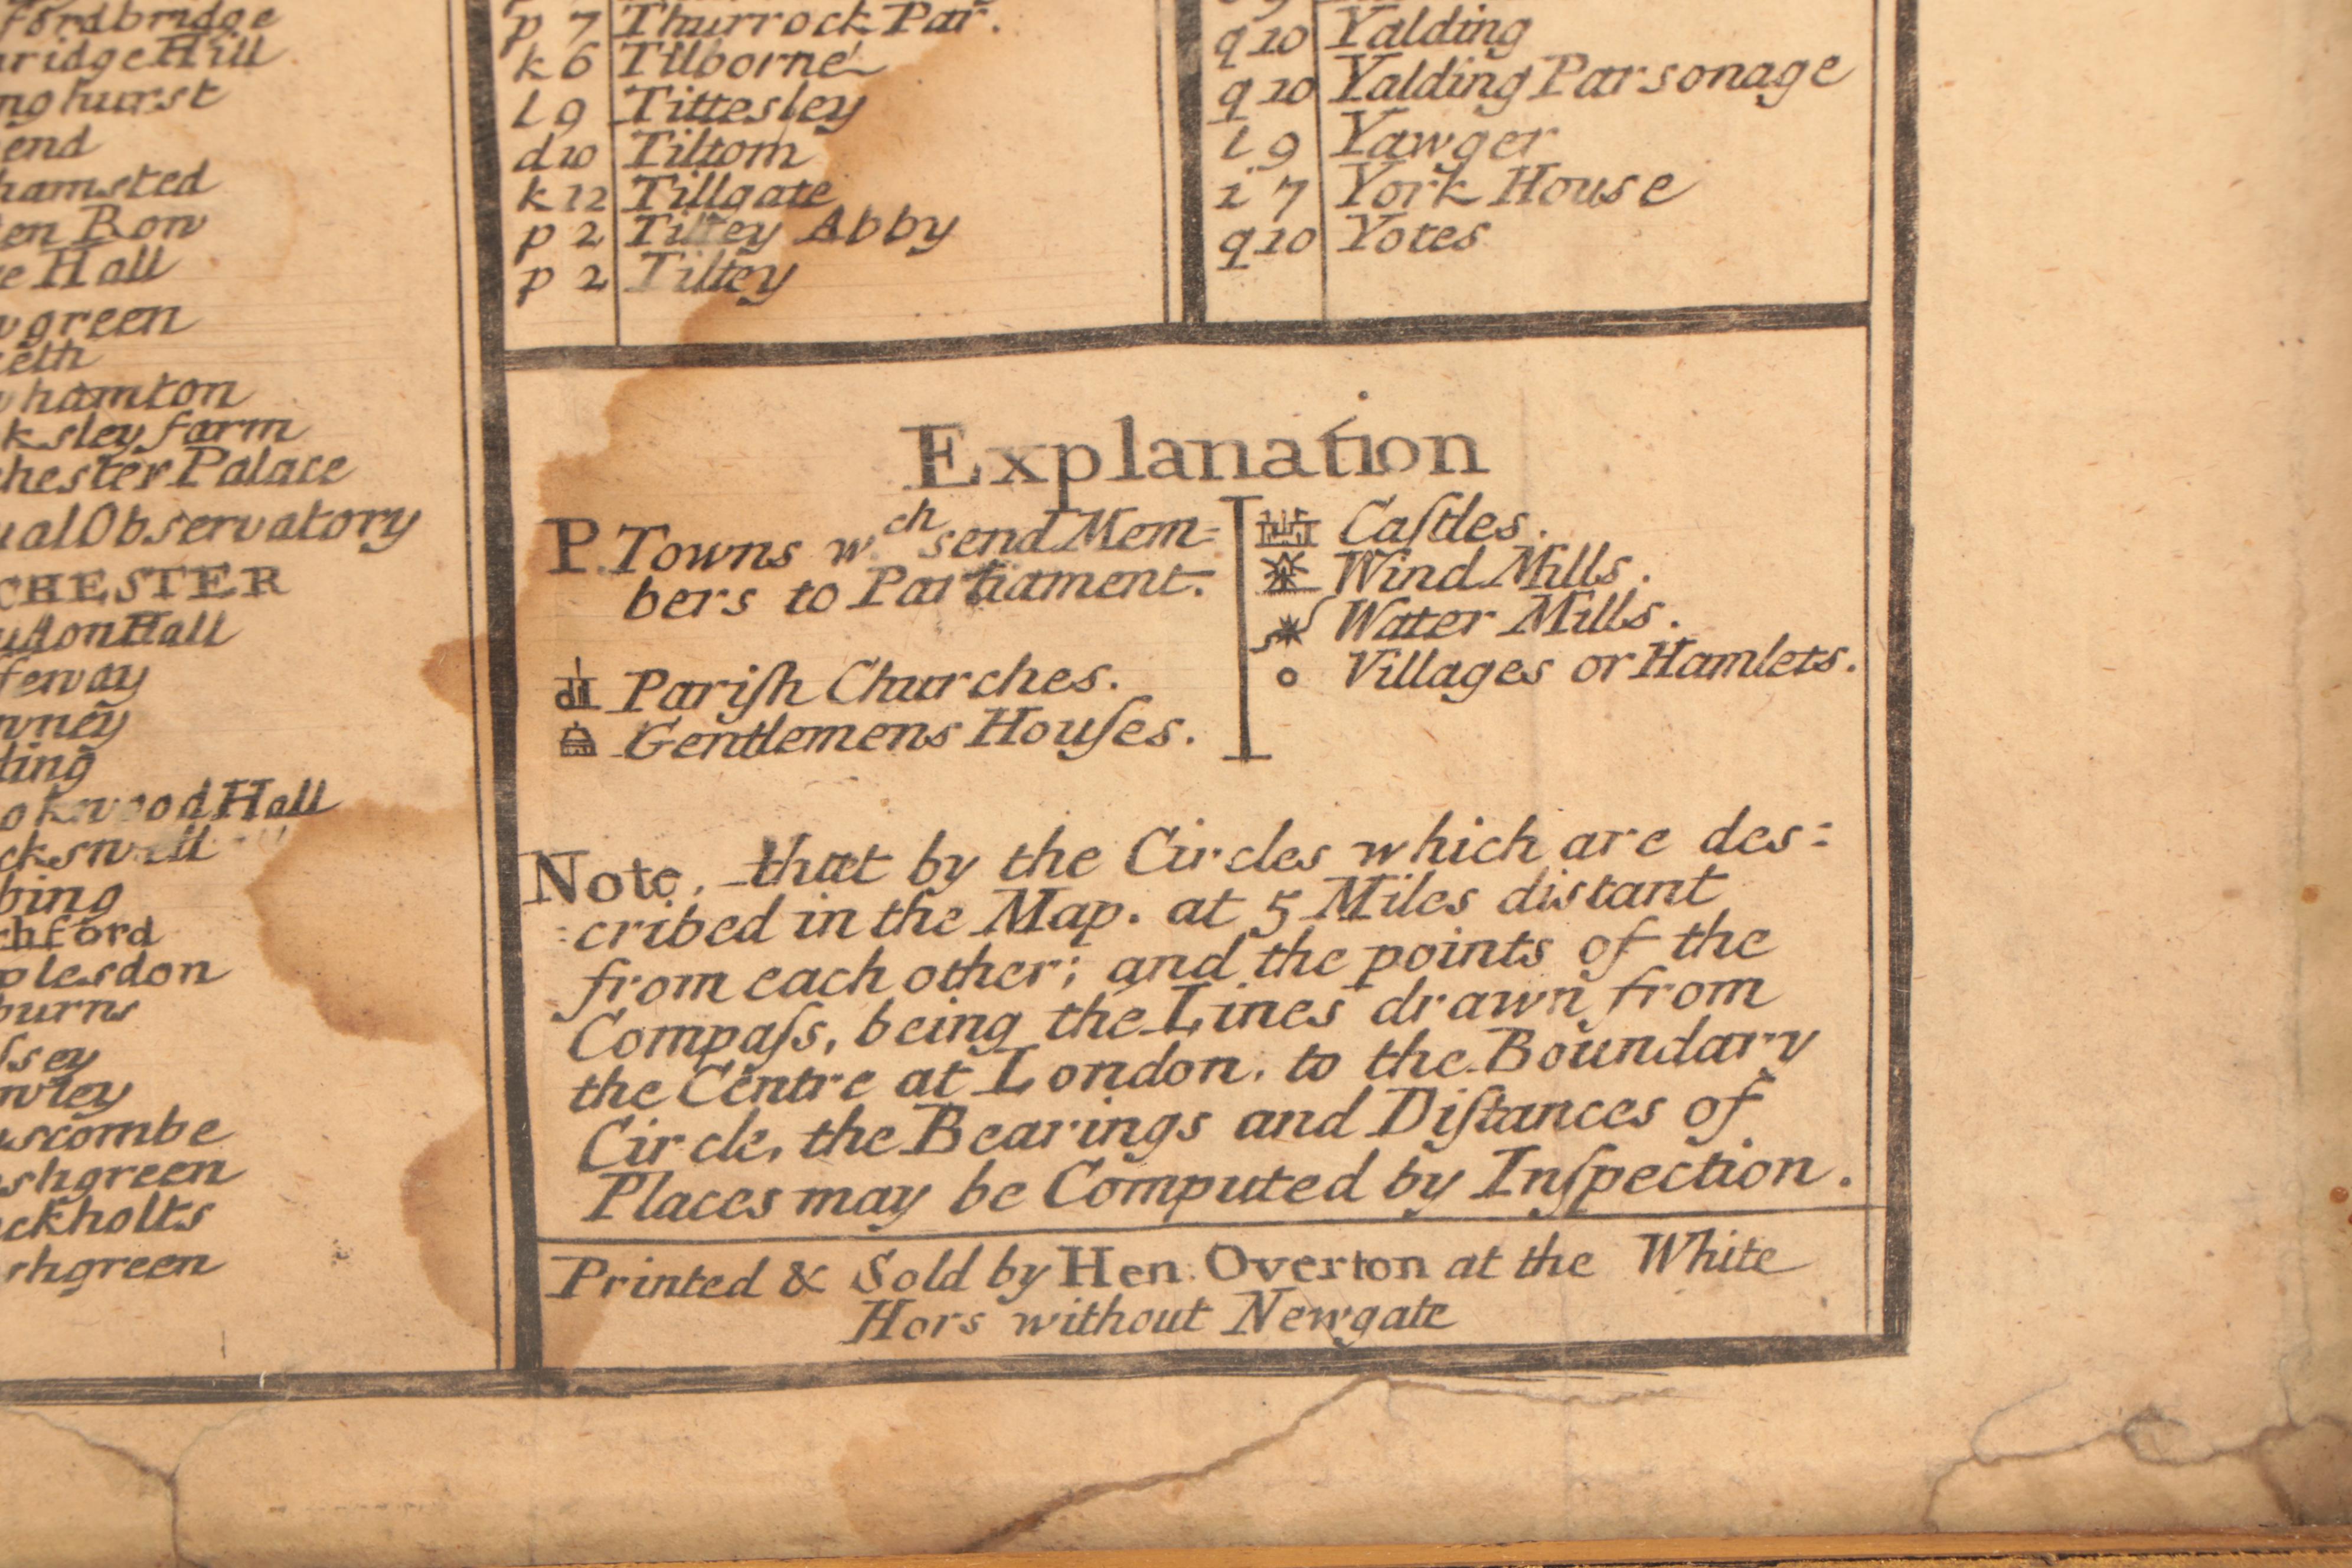 fordbridge
ridge Hill
nghurst
end
hamsted
en Row
e Hall
green
eth
hamton
ksley farm
chester Palace
ual Observatory
CHESTER
don Hall
feway
wney
ting
okwood Hall
ckswell
bing
chford
plesdon
burns
lsey
wley
uscombe
shgreen
ckholts
rhgreen
p 7 Thurrock Par.
k 6 Tilborne
l 9 Tittesley
d 10 Tiltom
k 12 Tillgate
p 2 Tiltey Abby
p 2 Tiltey
q 10 Yalding
q 10 Yalding Parsonage
l 9 Yawger
i 7 York House
q 10 Yotes
Explanation
P. Towns w.ch send Mem-
bers to Parliament.
Pariſh Churches.
Gentlemens Houſes.
Caſtles.
Wind Mills.
Water Mills.
Villages or Hamlets.
Note, that by the Circles which are des:
:cribed in the Map. at 5 Miles distant
from each other; and the points of the
Compaſs, being the Lines drawn from
the Centre at London, to the Boundary
Circle, the Bearings and Diſtances of
Places may be Computed by Inſpection.
Printed & Sold by Hen: Overton at the White
Hors without Newgate